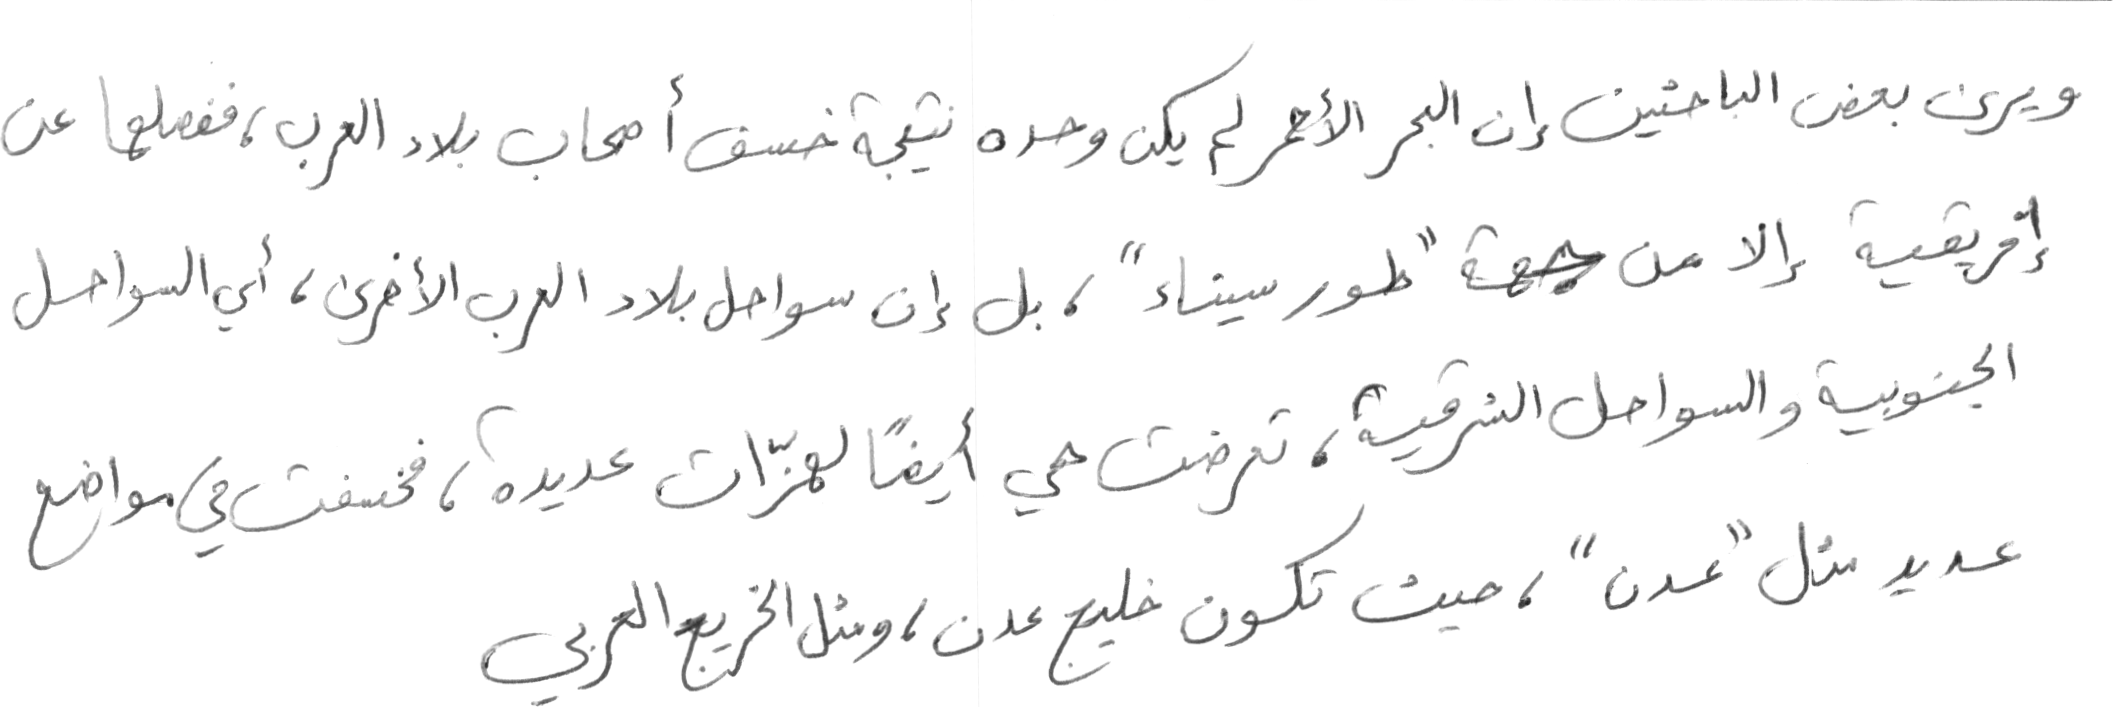 ويرى بعض الباحثين إن البحر الأحمر لم يكن وحده نتيجة خسف أصحاب بلاد العرب، ففصلها عن
إفريقية إلا من جهة "طور سيناء"، بل إن سواحل بلاد العرب الأخرى، أي السواحل
الجنوبية والسواحل الشرقية، تعرضت هي أيضًا لهزّات عديدة، فخسفت في مواضع
عديد مثل "عدن"، حيث تكون خليج عدن، ومثل الخريج العربي